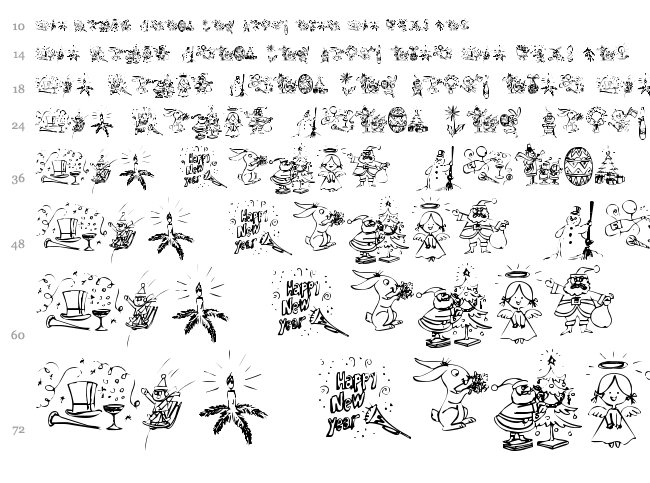 10
14
18
24
36
Happy
New
Year
48
Happy
New
Year
60
Happy
New
Year
72
Happy
New
Year